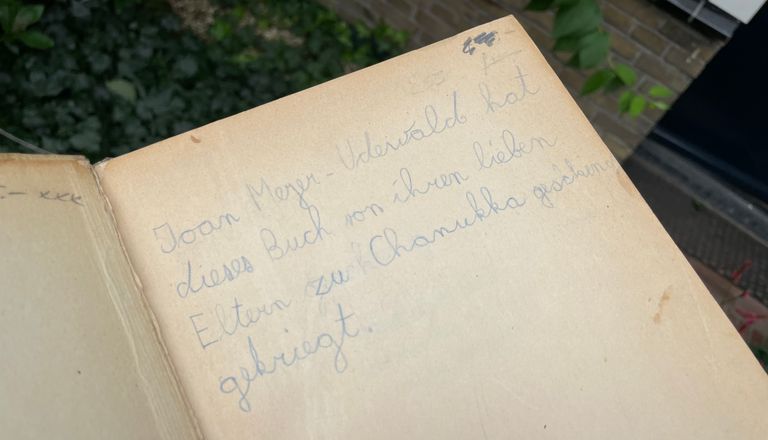 .- xxx
Joan Meyer-Udewald hat
dieses Buch von ihren lieben
Eltern zu Chanukka
gekriegt.